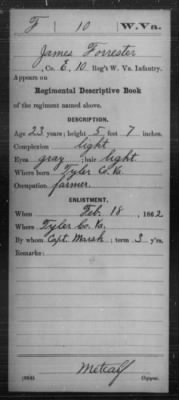 F 10 W.Va.
James Forrester
, Co. E, 10 Reg't W. Va. Infantry.
Appears on
Regimental Descriptive Book
of the regiment named above.
DESCRIPTION.
Age 23 years; height 5 feet 7 inches.
Complexion light
Eyes gray; hair light.
Where born Tyler Co. Va.
Occupation farmer.
ENLISTMENT.
When Feb 18, 1862
Where Tyler Co. Va.
By whom Capt. Marsh; term 3 y'rs.
Remarks:
Metcalf
Copyist.